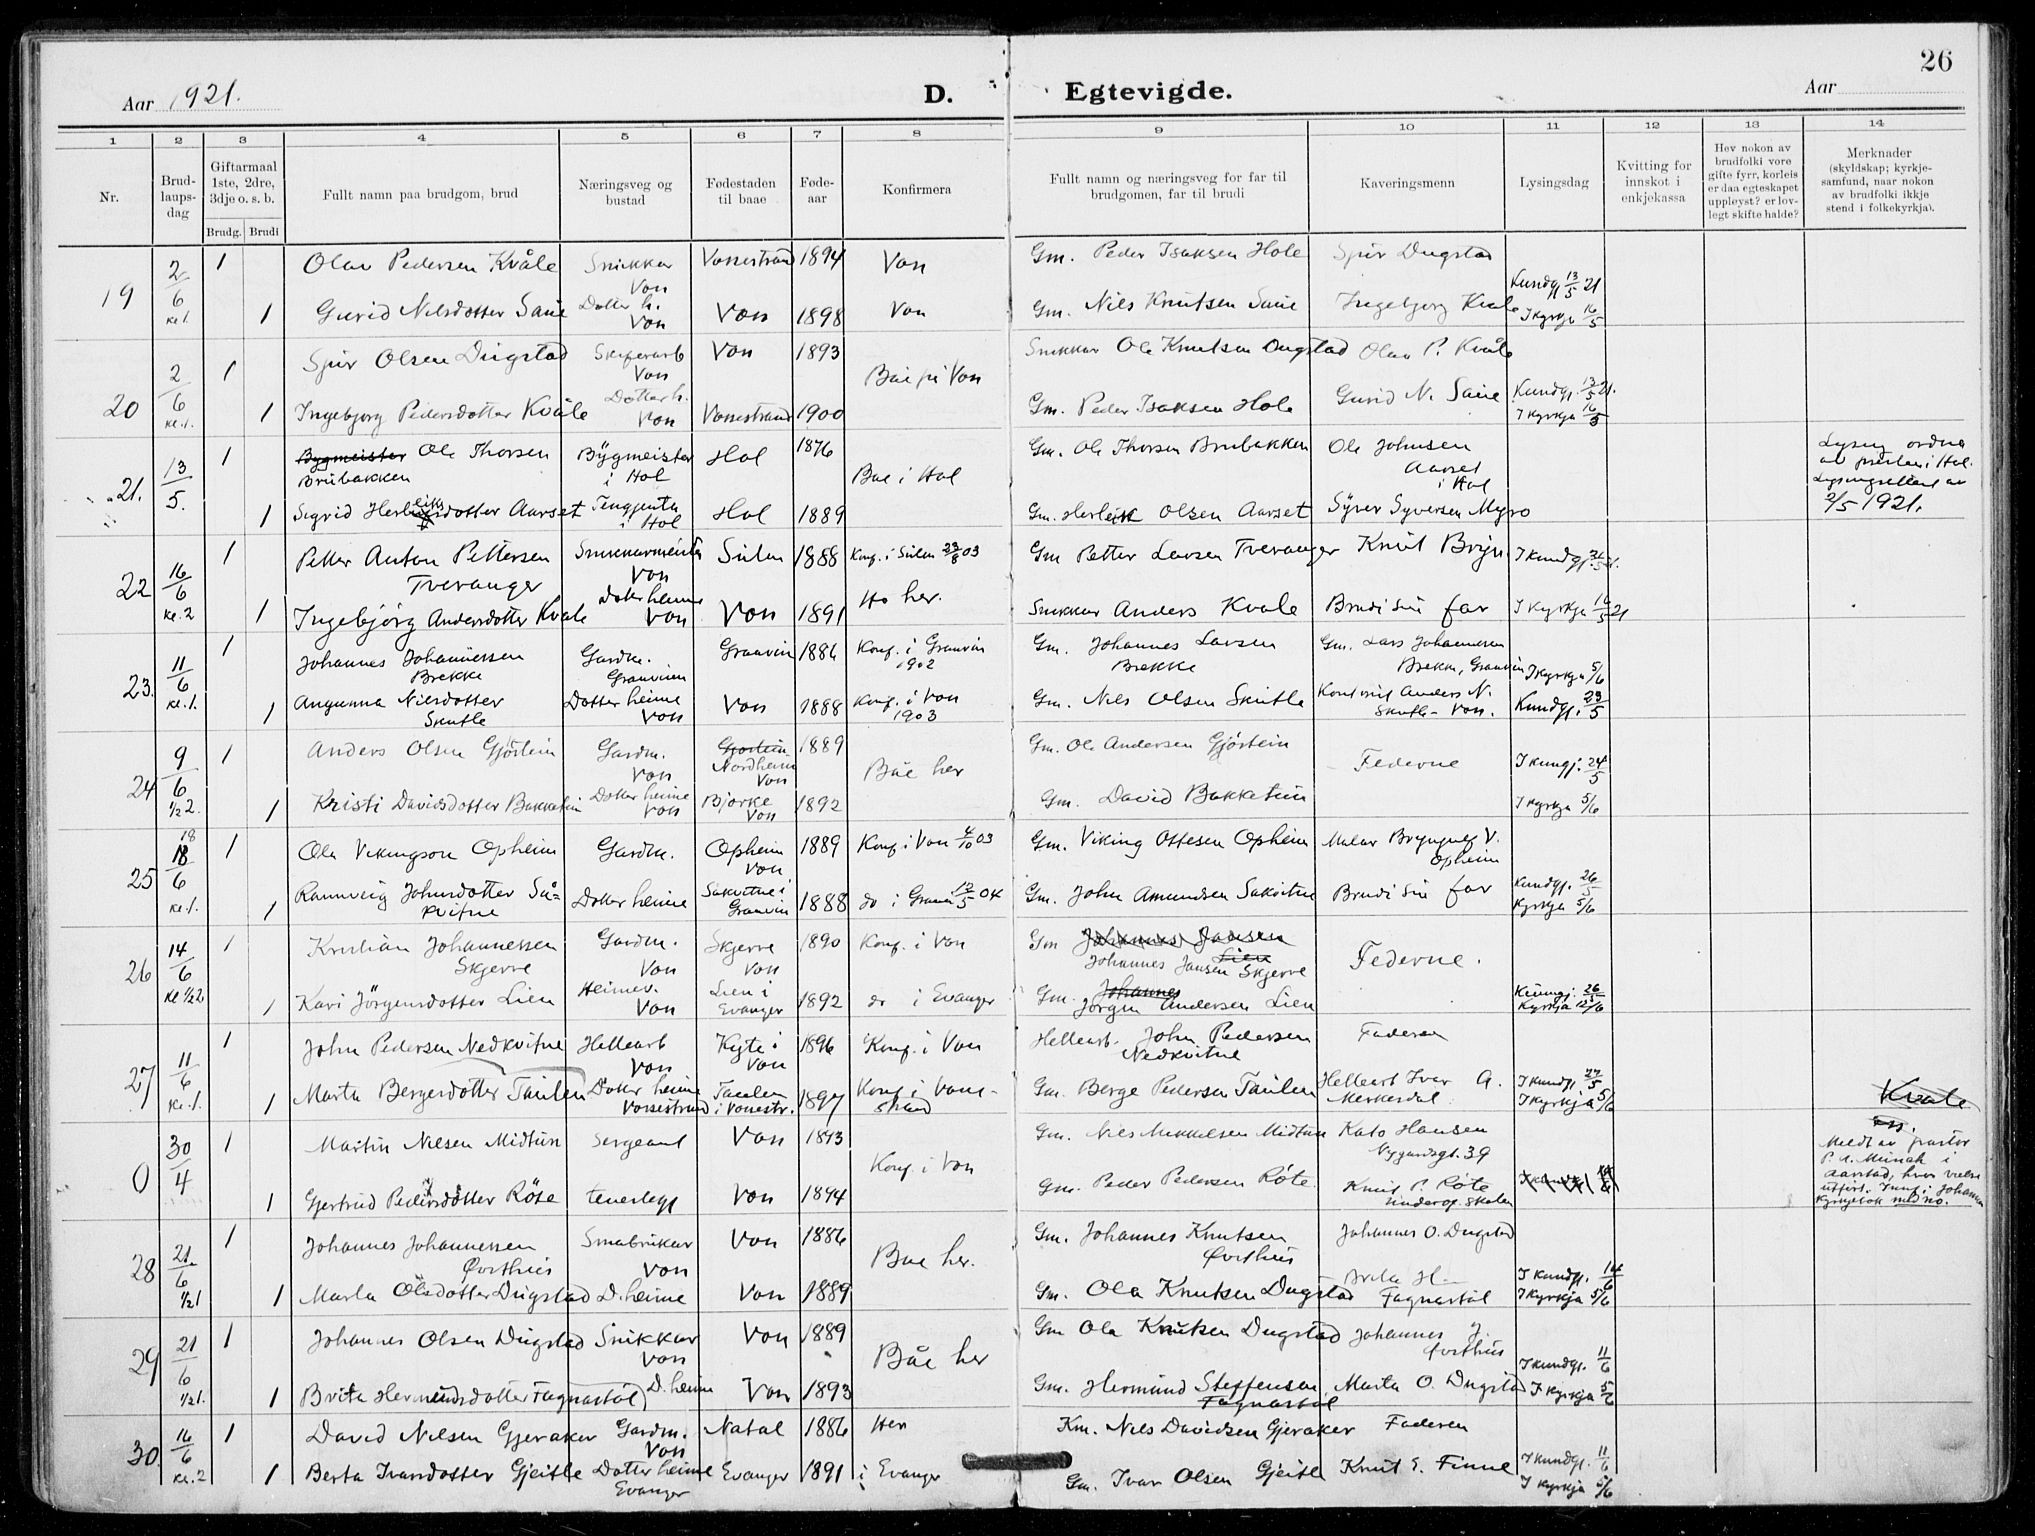 26
Aar 1921.
D. Egtevigde.
Aar
1 2 3 4 5 6 7 8 9 10 11 12 13 14
Nr.
Brudlaupsdag
Giftarmaal 1ste, 2dre, 3dje o. s. b.
Brudg. Brudi
Fullt namn paa brudgom, brud
Næringsveg og bustad
Fødestaden til baae
Fødeaar
Konfirmera
Fullt namn og næringsveg for far til brudgomen, far til brudi
Kaveringsmenn
Lysingsdag
Kvitting for innskot i enkjekassa
Hev nokon av brudfolki vore gifte fyrr, korleis er daa egteskapet uppleyst? er lovlegt skifte halde?
Merknader (skyldskap; kyrkjesamfund, naar nokon av brudfolki ikkje stend i folkekyrkja).
19 2/6 kl. 1 1 Olav Pedersen Kvåle Snikkar Voss Vossestrand 1894 Voss Gm. Peder Isaksen Hole Sjur Dugstad Kundgj 13/5 21
1 Gurid Nilsdotter Saue Dotter h. Voss Voss 1898 Voss Gm. Nils Knutsen Saue Ingebjorg Kvale I kyrkja 16/5
20 2/6 kl. 1. 1 Sjur Olsen Dugstad Skiferarb Voss Voss 1893 Båe på Voss Snikkar Ole Knutsen Dugstad Olav P. Kvåle
1 Ingebjorg Pedersdotter Kvåle Dotter h. Voss Vossestrand 1900 Gm. Peder Isaksen Hole Gurid N. Saue Kundgj. 13/5 21. I kyrkja 16/5
21. 13/5. 1 Bygmeister Ole Thorsen Brubakken Bygmeister i Hol Hol 1876 Bae i Hol Gm. Ole Thorsen Brubakken Ole Johnsen Aarset i Hol Lysing ordna av presten i Hol.
1 Sigrid Herleiksdotter Aarset i Hol Hol 1889 Gm. Herleik Olsen Aarset Syver Syversen Myro 2/5 1921.
22 16/6 kl. 2 1 Petter Anton Pettersen Tveranger Snikkarmeister Voss Sulen 1888 Konf. i Sulen 23/8 03 Gm Petter Larsen Tveranger Knut Bryn I kundgj.
1 Ingebjörg Andersdotter Kvale Dotter heime Voss Voss 1891 Ho her. Snikkar Anders Kvale Brudi sin far I kyrkja 16/5 21
23. 11/6 kl. 1. 1 Johannes Johannessen Brekke Gardm. Granvin Granvin 1886 Konf. i Granvin 1902 Gm. Johannes Larsen Brekke Gm. Lars Johannessen Brekke, Granvin I kyrkja 5/6
1 Angunna Nilsdotter Skutle Dotter heime Voss Voss 1888 Konf. i Voss 1903 Gm. Nils Olsen Skutle Anders N. Skutle - Voss. Kundgj. 23/5
24 9/6 ½2. 1 Anders Olsen Gjöstein Gardm. Voss Gjöstein Nordheim Voss 1889 Båe her Gm. Ole Andersen Gjöstein Federne I kungj. 24/5
1 Kristi Davidsdotter Bakketun Dotter heime Voss Bjørke Voss 1892 Gm. David Bakketun I kyrkja 5/6
25 18 18/6 kl. 1. 1 Ola Vikingson Opheim Gardm. Opheim Voss 1889 Konf. i Voss 4/10 03 Gm. Viking Ottesen Opheim Malar Brynjulf V. Opheim
1 Rannveig Johnsdotter Såkvitne Dotter heime Såkvitne i Granvin 1888 do i Granvin 12/5 04 Gm. John Amundsen Sakvitne Brudi sin far Kundgj. 26/5 Kyrkja 5/6
26 14/6 kl ½2 1 Kristian Johannessen Skjerve Gardm. Voss Skjerve Voss 1890 Konf. i Voss Gm Johannes Jansen Lien Johannes Jansen Skjerve Federne.
1 Kari Jörgensdotter Lien Heimev. Voss Lien i Evanger 1892 do i Evanger Gm. Johannes Jörgen Andersen Lien Kungj. 26/5 Kyrkja 12/6
27 11/6 kl. 1. 1 John Pedersen Nedkvitne Hellearb Voss Kyte i Voss 1896 Konf. i Voss Hellearb. John Pedersen Nedkvitne Faderen
1 Marta Bergesdotter Taulen Dotter heime Vossestrand Taulen i Vossestr. 1897 Konf i Vossestrand Gm. Berge Pedersen Taulen Hellearb Ivar A. I kundgj 27/5 I kyrkja 5/6 Kvale
0 30/4 1 Martin Nilsen Midtun Sergeant Voss 1893 Konf. i Voss Gm. Nils Mikkelsen Midtun Kato Hansen Nygaardsgt. 39 Meldt av pastor P. A. Munch i Aarstad,
1 Gjertrud Pedersdotter Röte Voss 1894 Gm. Peder Pedersen Röte Knut P. Röte Underof. skolen
28 21/6 ½1 1 Johannes Johannessen Øvsthus Smabrukar Voss Voss 1886 Bae her. Gm. Johannes Knutsen Øvsthus Johannes O. Dugstad
1 Marta Olsdotter Dugstad D. heime Voss 1889 Gm. Ola Knutsen Dugstad Brita H. Fagnastöl I kundgj. 14/6 I kyrkja 5/6
29 21/6 ½1. 1 Johannes Olsen Dugstad Snikkar Voss Voss 1889 Båe her Gm Ola Knutsen Dugstad Johannes J. Øvsthus
1 Brita Hermundsdotter Fagnastöl D. heime Voss 1893 Gm. Hermund Steffensen Fagnastöl Marta O. Dugstad I kundgj. 11/6 I kyrkja 5/6
30. 16/6 kl. 2 1 David Nilsen Gjeraker Gardm. Voss Natal 1886 Her Km. Nils Davidsen Gjeraker Faderen
1 Berta Ivarsdotter Gjeitle Dotter heime Evanger Evanger 1891 i Evanger Gm. Ivar Olsen Gjeitle Knut E. Finne I kundgj. 11/6 I kyrkja 5/6